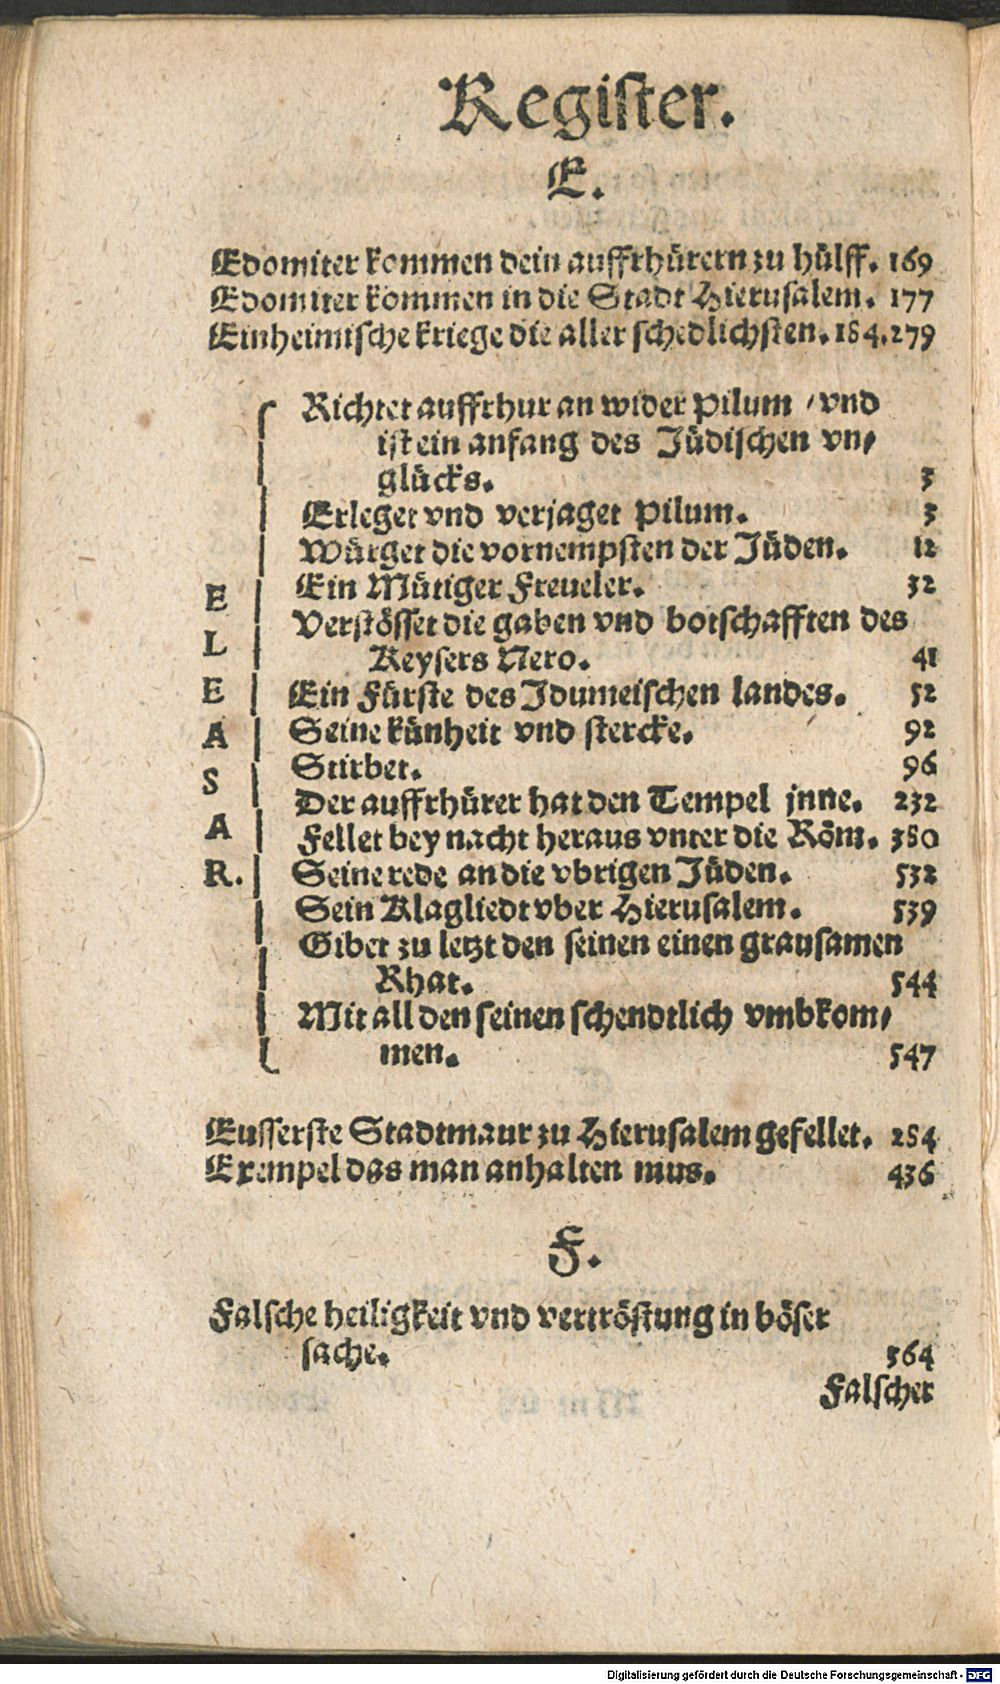 Register.
E.
Edomiter kommen dein auffrhürern zu hülff. 169
Edomiter kommen in die Stadt Hierusalem. 177
Einheimische kriege die aller schedlichsten. 184.279
Richtet auffrhur an wider Pilum / vnd
ist ein anfang des Jüdischen vn/
glücks. 3
Erleget vnd verjaget Pilum. 3
Würget die vornempsten der Jüden. 12
Ein Mütiger Freueler. 32
Verstösset die gaben vnd botschafften des
Keysers Nero. 41
Ein Fürste des Idumeischen landes. 52
Seine künheit vnd stercke. 92
Stirbet. 96
Der auffrhürer hat den Tempel jnne. 232
Fellet bey nacht heraus vnter die Röm. 380
Seine rede an die vbrigen Jüden. 532
Sein Klagliedt vber Hierusalem. 539
Gibet zu letzt den seinen einen grausamen
Rhat. 544
Mit all den seinen schendtlich vmbkom/
men. 547
E
L
E
A
S
A
R.
Eusserste Stadtmaur zu Hierusalem gefellet. 284
Exempel das man anhalten mus. 436
F.
Falsche heiligkeit vnd vertröstung in böser
sache. 364
Falscher
Digitalisierung gefördert durch die Deutsche Forschungsgemeinschaft - DFG